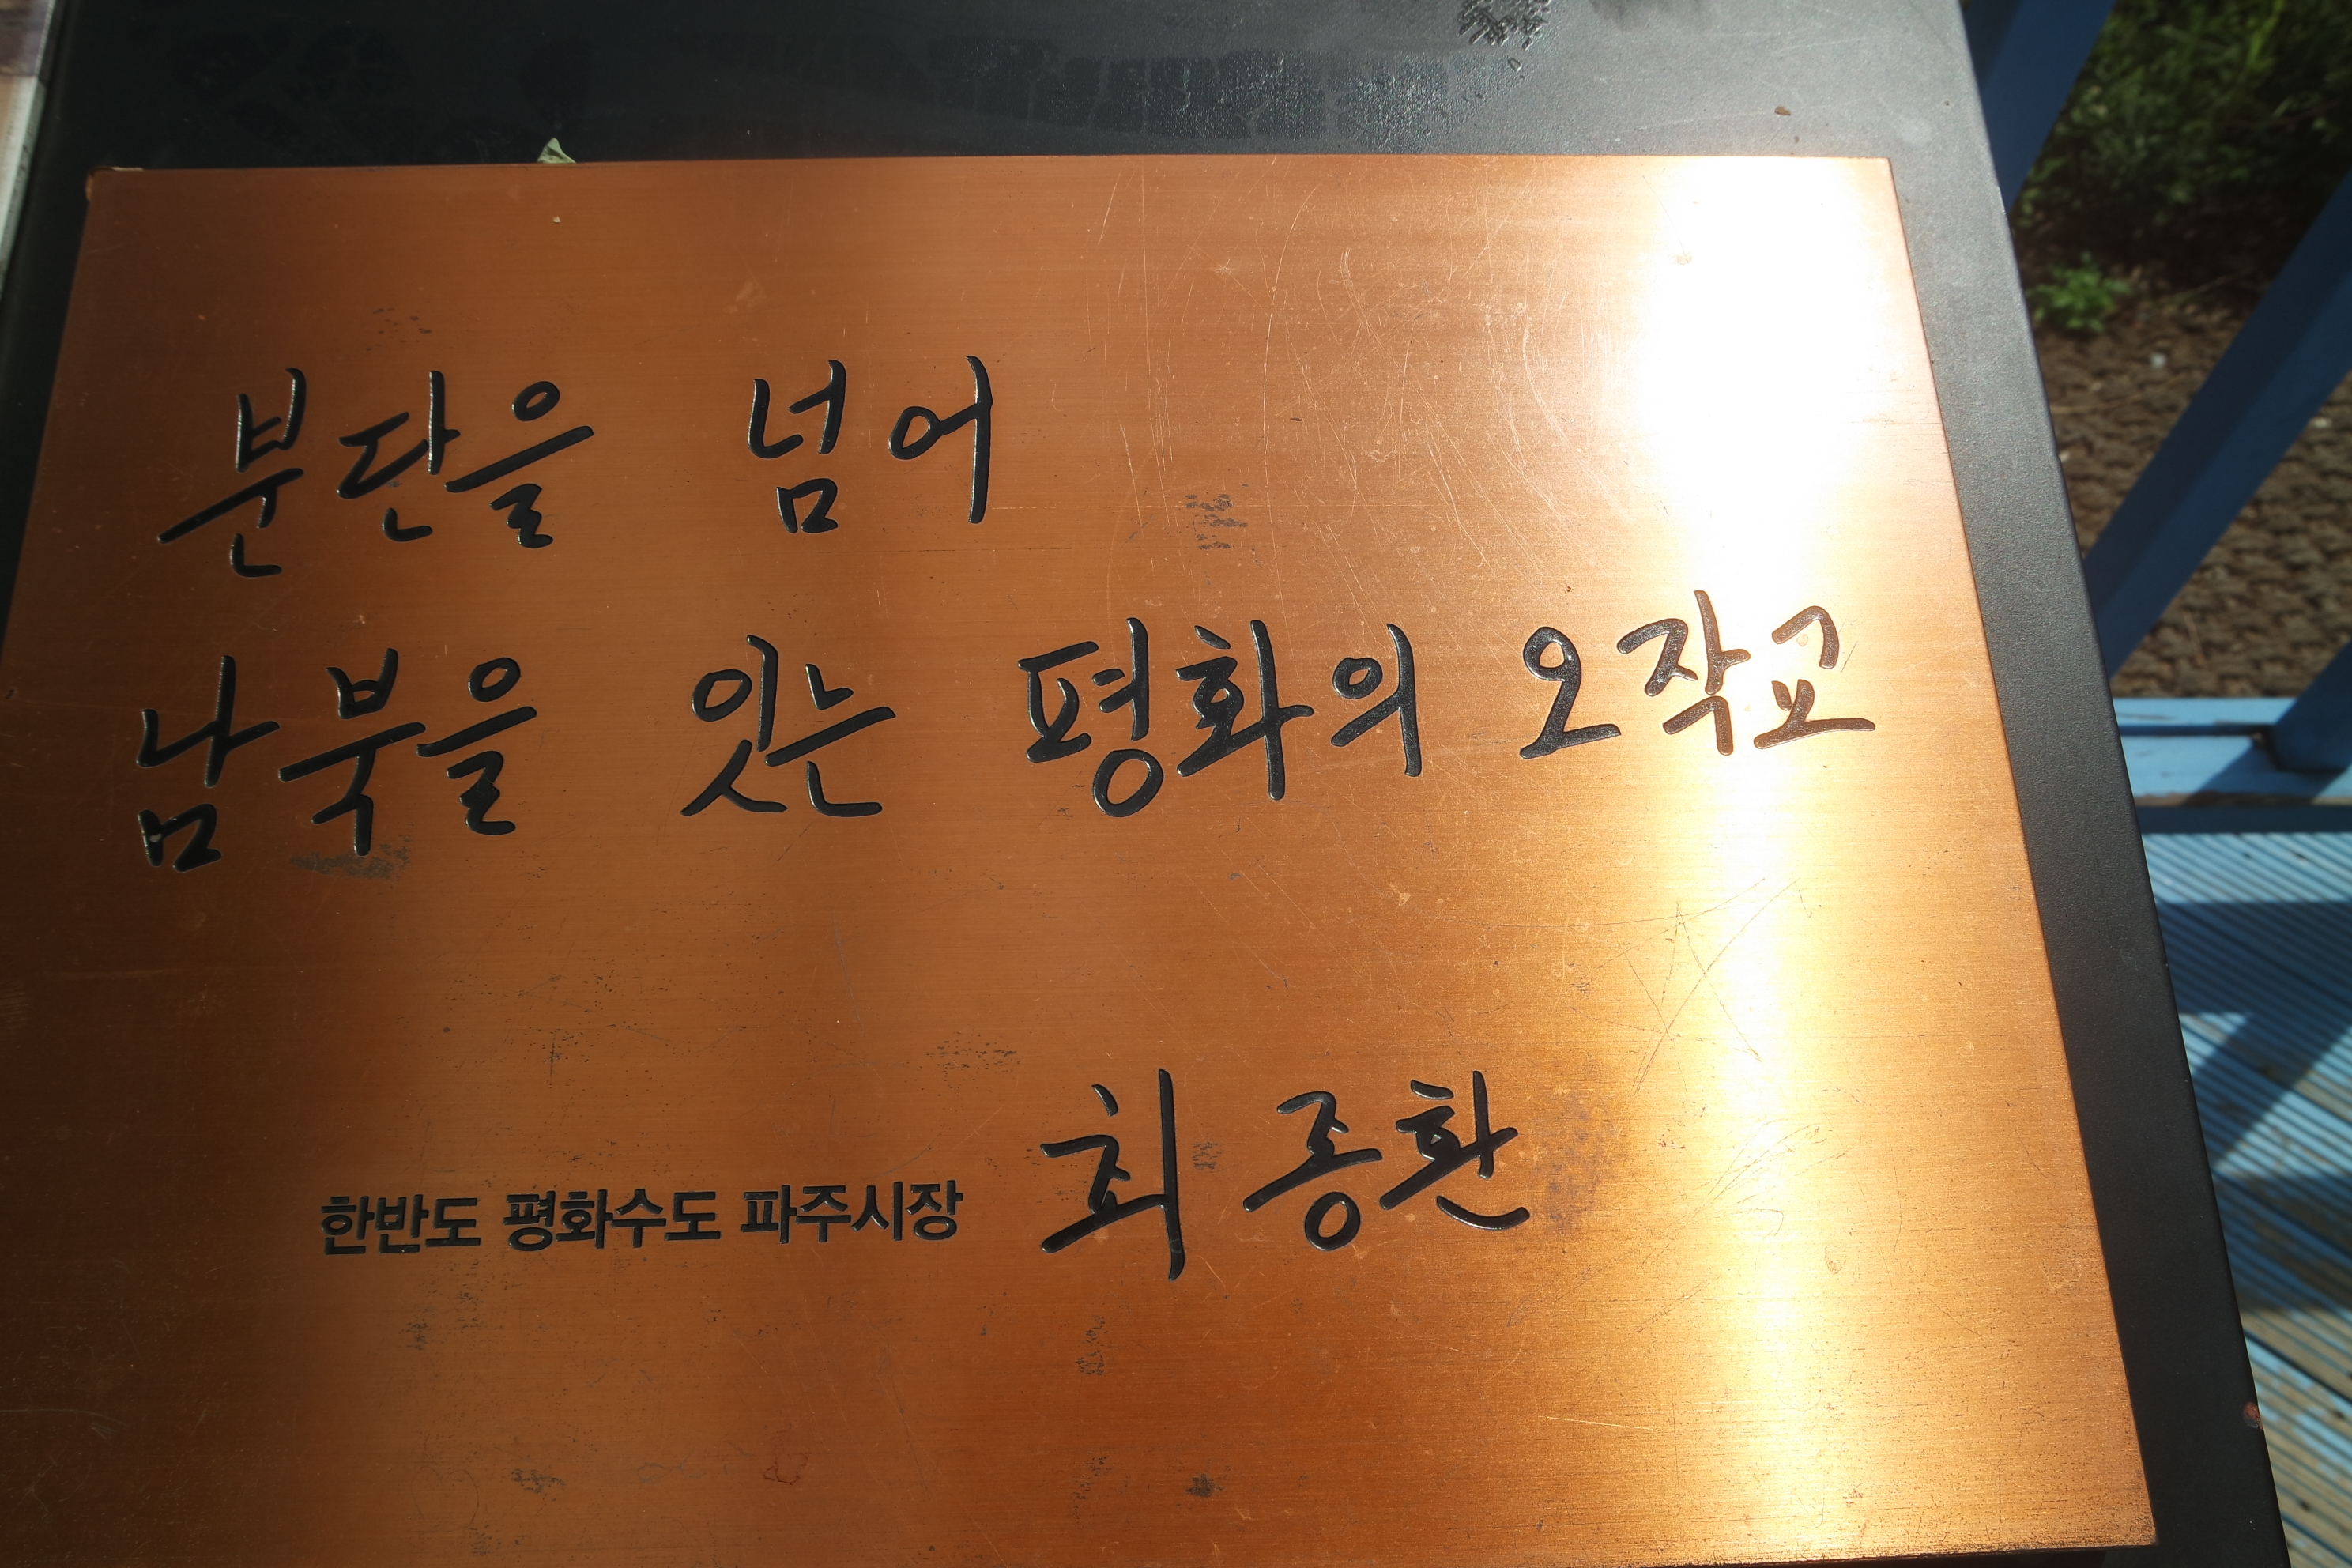 분단을 넘어
남북을 잇는 평화의 오작교
한반도 평화수도 파주시장 최종환